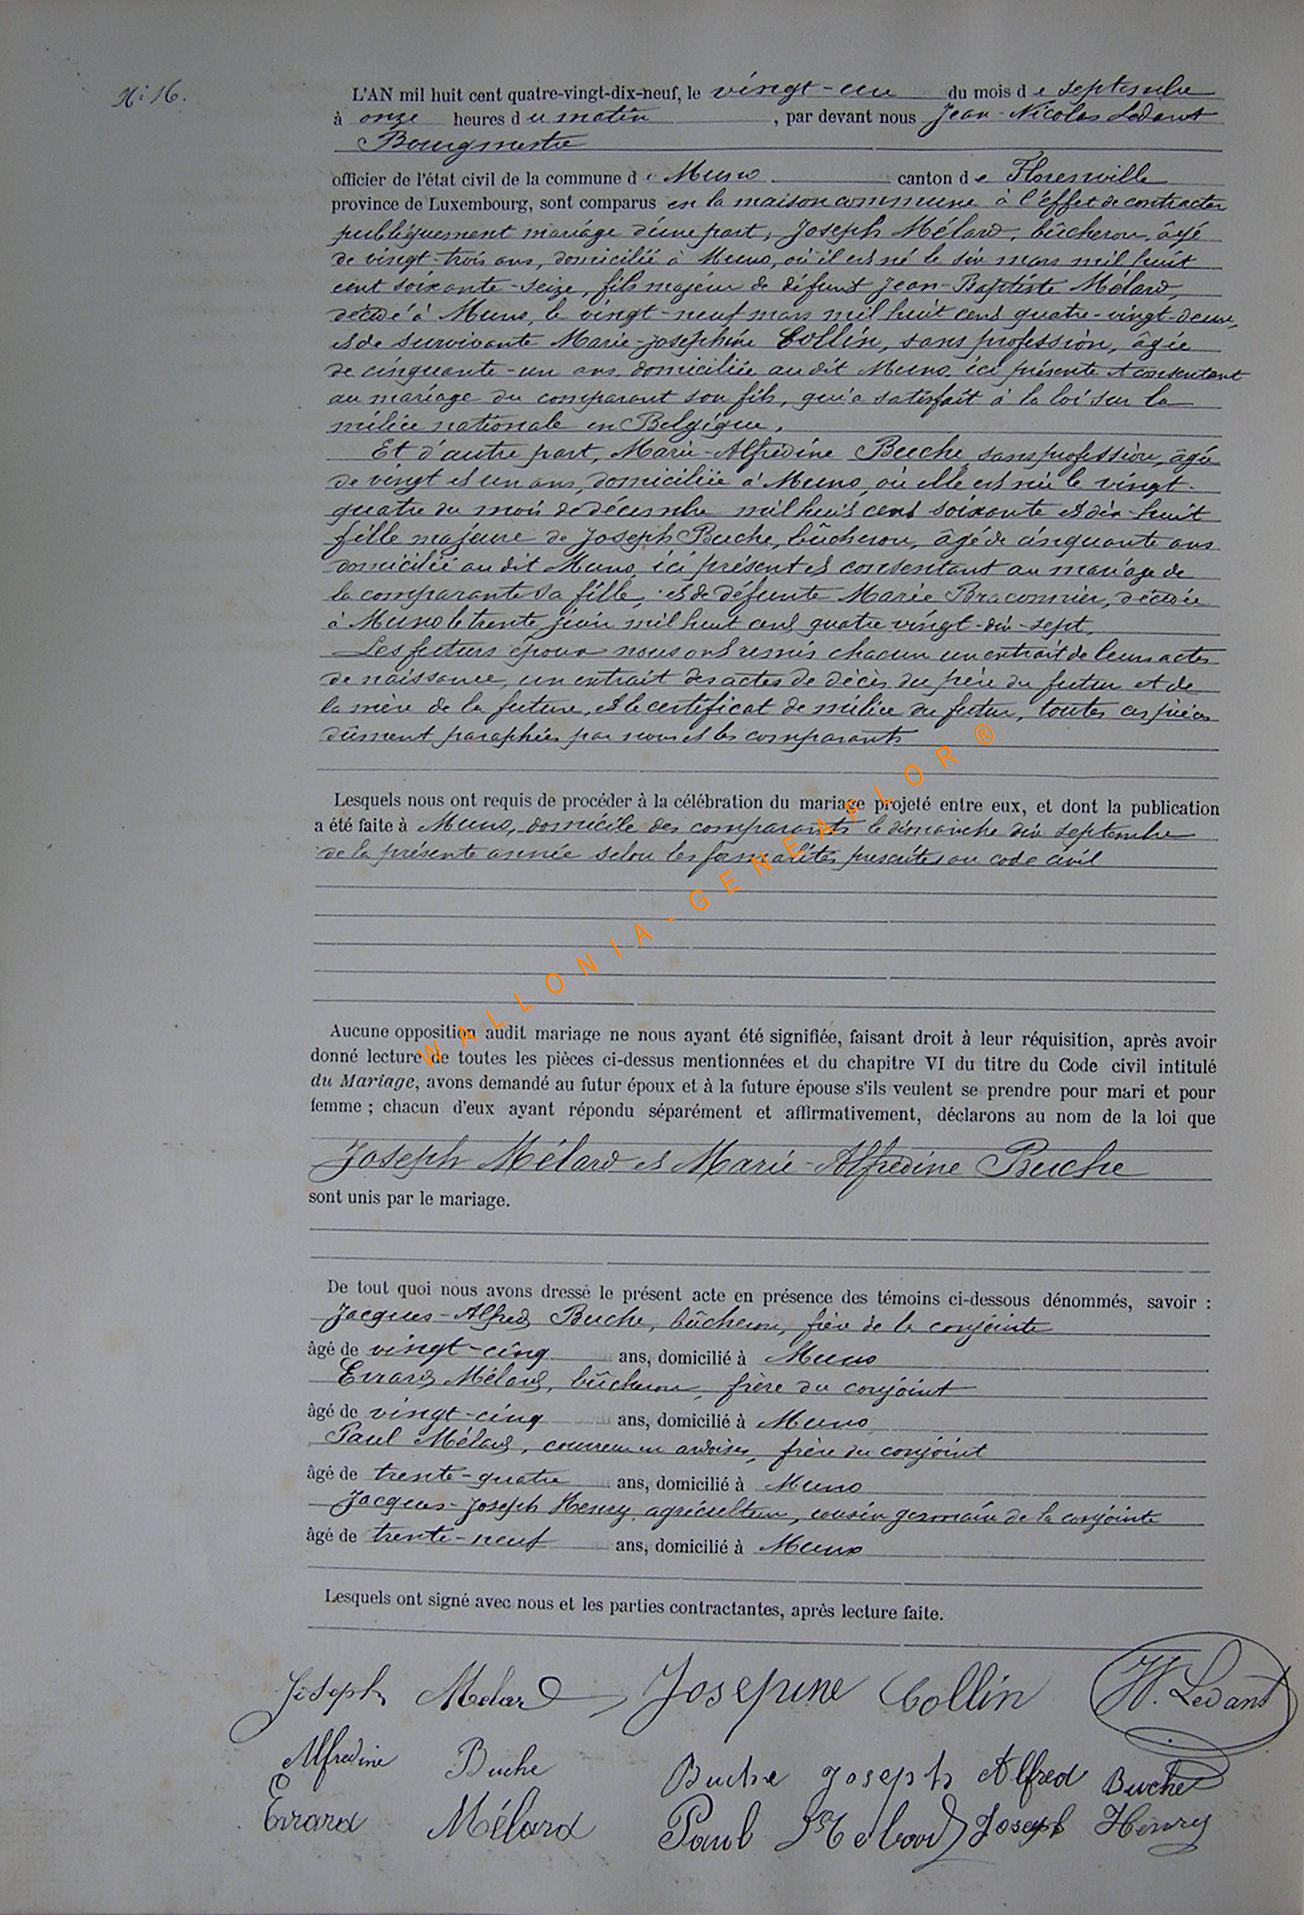 N: 16.
L'AN mil huit cent quatre-vingt-dix-neuf, le vingt-un du mois de septembre
à onze heures du matin, par devant nous Jean-Nicolas Ledant
Bourgmestre
officier de l'état civil de la commune de Muno canton de Florenville
province de Luxembourg, sont comparus en la maison commune à l'effet de contracter
publiquement mariage d'une part, Joseph Mélard, bûcheron, âgé
de vingt-trois ans, domicilié à Muno, où il est né le six mars mil huit
cent soixante-seize, fils majeur de défunt Jean-Baptiste Mélard,
décédé à Muno, le vingt-neuf mars mil huit cent quatre-vingt-deux,
et de survivante Marie-Joséphine Collin, sans profession, âgée
de cinquante-un ans, domiciliée au dit Muno, ici présente et consentant
au mariage du comparant son fils, qui a satisfait à la loi sur la
milice nationale en Belgique.
Et d'autre part, Marie-Alfrédine Buche, sans profession, âgée
de vingt et un ans, domiciliée à Muno, où elle est née le vingt-
quatre du mois de décembre mil huit cent soixante et dix-huit
fille majeure de Joseph Buche, bûcheron, âgé de cinquante ans
domicilié au dit Muno, ici présent et consentant au mariage de
la comparante sa fille, et de défunte Marie Braconnier, décédée
à Muno le trente juin mil huit cent quatre vingt-dix-sept.
Les futurs époux nous ont remis chacun un extrait de leurs actes
de naissance, un extrait des actes de décès du père du futur et de
la mère de la future, et le certificat de milice du futur, toutes ces pièces
dûment paraphées par nous et les comparants
Lesquels nous ont requis de procéder à la célébration du mariage projeté entre eux, et dont la publication
a été faite à Muno, domicile des comparants le dimanche dix septembre
de la présente année selon les formalités prescrites au code civil
WALLONIA-GENEAFLOR ®
Aucune opposition audit mariage ne nous ayant été signifiée, faisant droit à leur réquisition, après avoir
donné lecture de toutes les pièces ci-dessus mentionnées et du chapitre VI du titre du Code civil intitulé
du Mariage, avons demandé au futur époux et à la future épouse s'ils veulent se prendre pour mari et pour
femme ; chacun d'eux ayant répondu séparément et affirmativement, déclarons au nom de la loi que
Joseph Mélard et Marie-Alfredine Buche
sont unis par le mariage.
De tout quoi nous avons dressé le présent acte en présence des témoins ci-dessous dénommés, savoir :
Jacques-Alfred Buche, bûcheron, frère de la conjointe
âgé de vingt-cinq ans, domicilié à Muno
Evrard Mélard, bûcheron, frère du conjoint
âgé de vingt-cinq ans, domicilié à Muno
Paul Mélard, couvreur en ardoises, frère du conjoint
âgé de trente-quatre ans, domicilié à Muno
Jacques-Joseph Henry, agriculteur, cousin germain de la conjointe
âgé de trente-neuf ans, domicilié à Muno
Lesquels ont signé avec nous et les parties contractantes, après lecture faite.
Joseph Melard Josepine Collin Ledant
Alfredine Buche Buche Joseph Alfred Buche
Evrard Mélard Paul Melard Joseph Henry